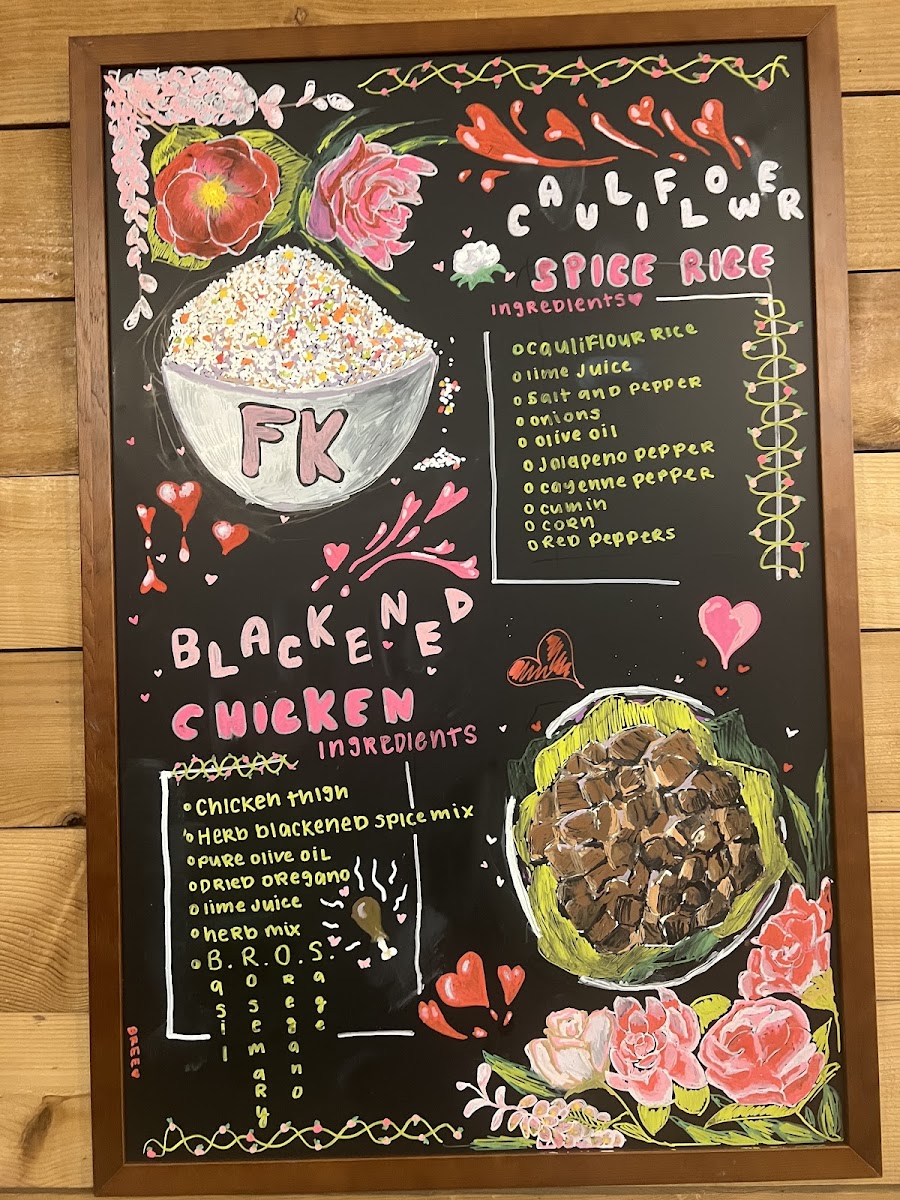 CAULIFLOWER
SPICE RICE
Ingredients♥
FK
o cauliflour Rice
o lime Juice
o Salt and Pepper
o onions
o olive oil
o Jalapeno pepper
o cayenne pepper
o cumin
o corn
o Red Peppers
BLACKENED
CHICKEN
Ingredients
o Chicken thigh
o Herb blackened spice mix
o Pure olive oil
o Dried oregano
o lime Juice
o herb mix
o B.R.O.S.
Basil
Rosemary
Oregano
Sage
BREE♥